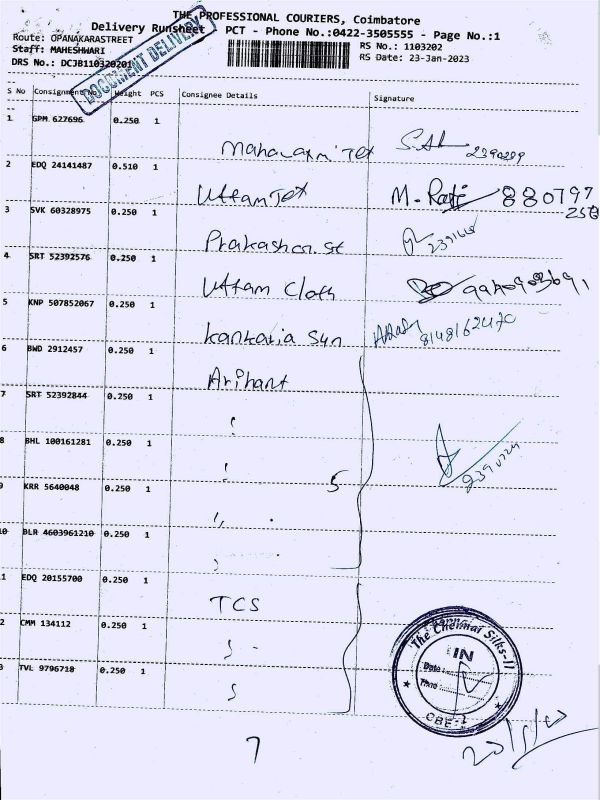 THE PROFESSIONAL COURIERS, Coimbatore
Delivery Runsheet PCT - Phone No.:0422-3505555 - Page No.:1
Route: OPANAKARASTREET
Staff: MAHESHWARI
DRS No.: DCJB110320201
RS No.: 1103202
RS Date: 23-Jan-2023
DOCUMENT DELIVERY
S No Consignment No Weight PCS Consignee Details Signature
1 GPM 627696 0.250 1
Mahalaxmi Tex
2 EDQ 24141487 0.510 1
Uttam Tex M. 880797
258
3 SVK 60328975 0.250 1
4 SRT 52392576 0.250 1
Uttam Cloth
5 KNP 507852067 0.250 1
Kankaria Sun
6 BWD 2912457 0.250 1
Arihant
7 SRT 52392844 0.250 1
8 BHL 100161281 0.250 1
5
9 KRR 5640048 0.250 1
10 BLR 4603961210 0.250 1
1 EDQ 20155700 0.250 1
TCS
2 CMM 134112 0.250 1
3 TVL 9796718 0.250 1
The Chennai Silks-II
IN
Date :
Time :
CBE-1
7